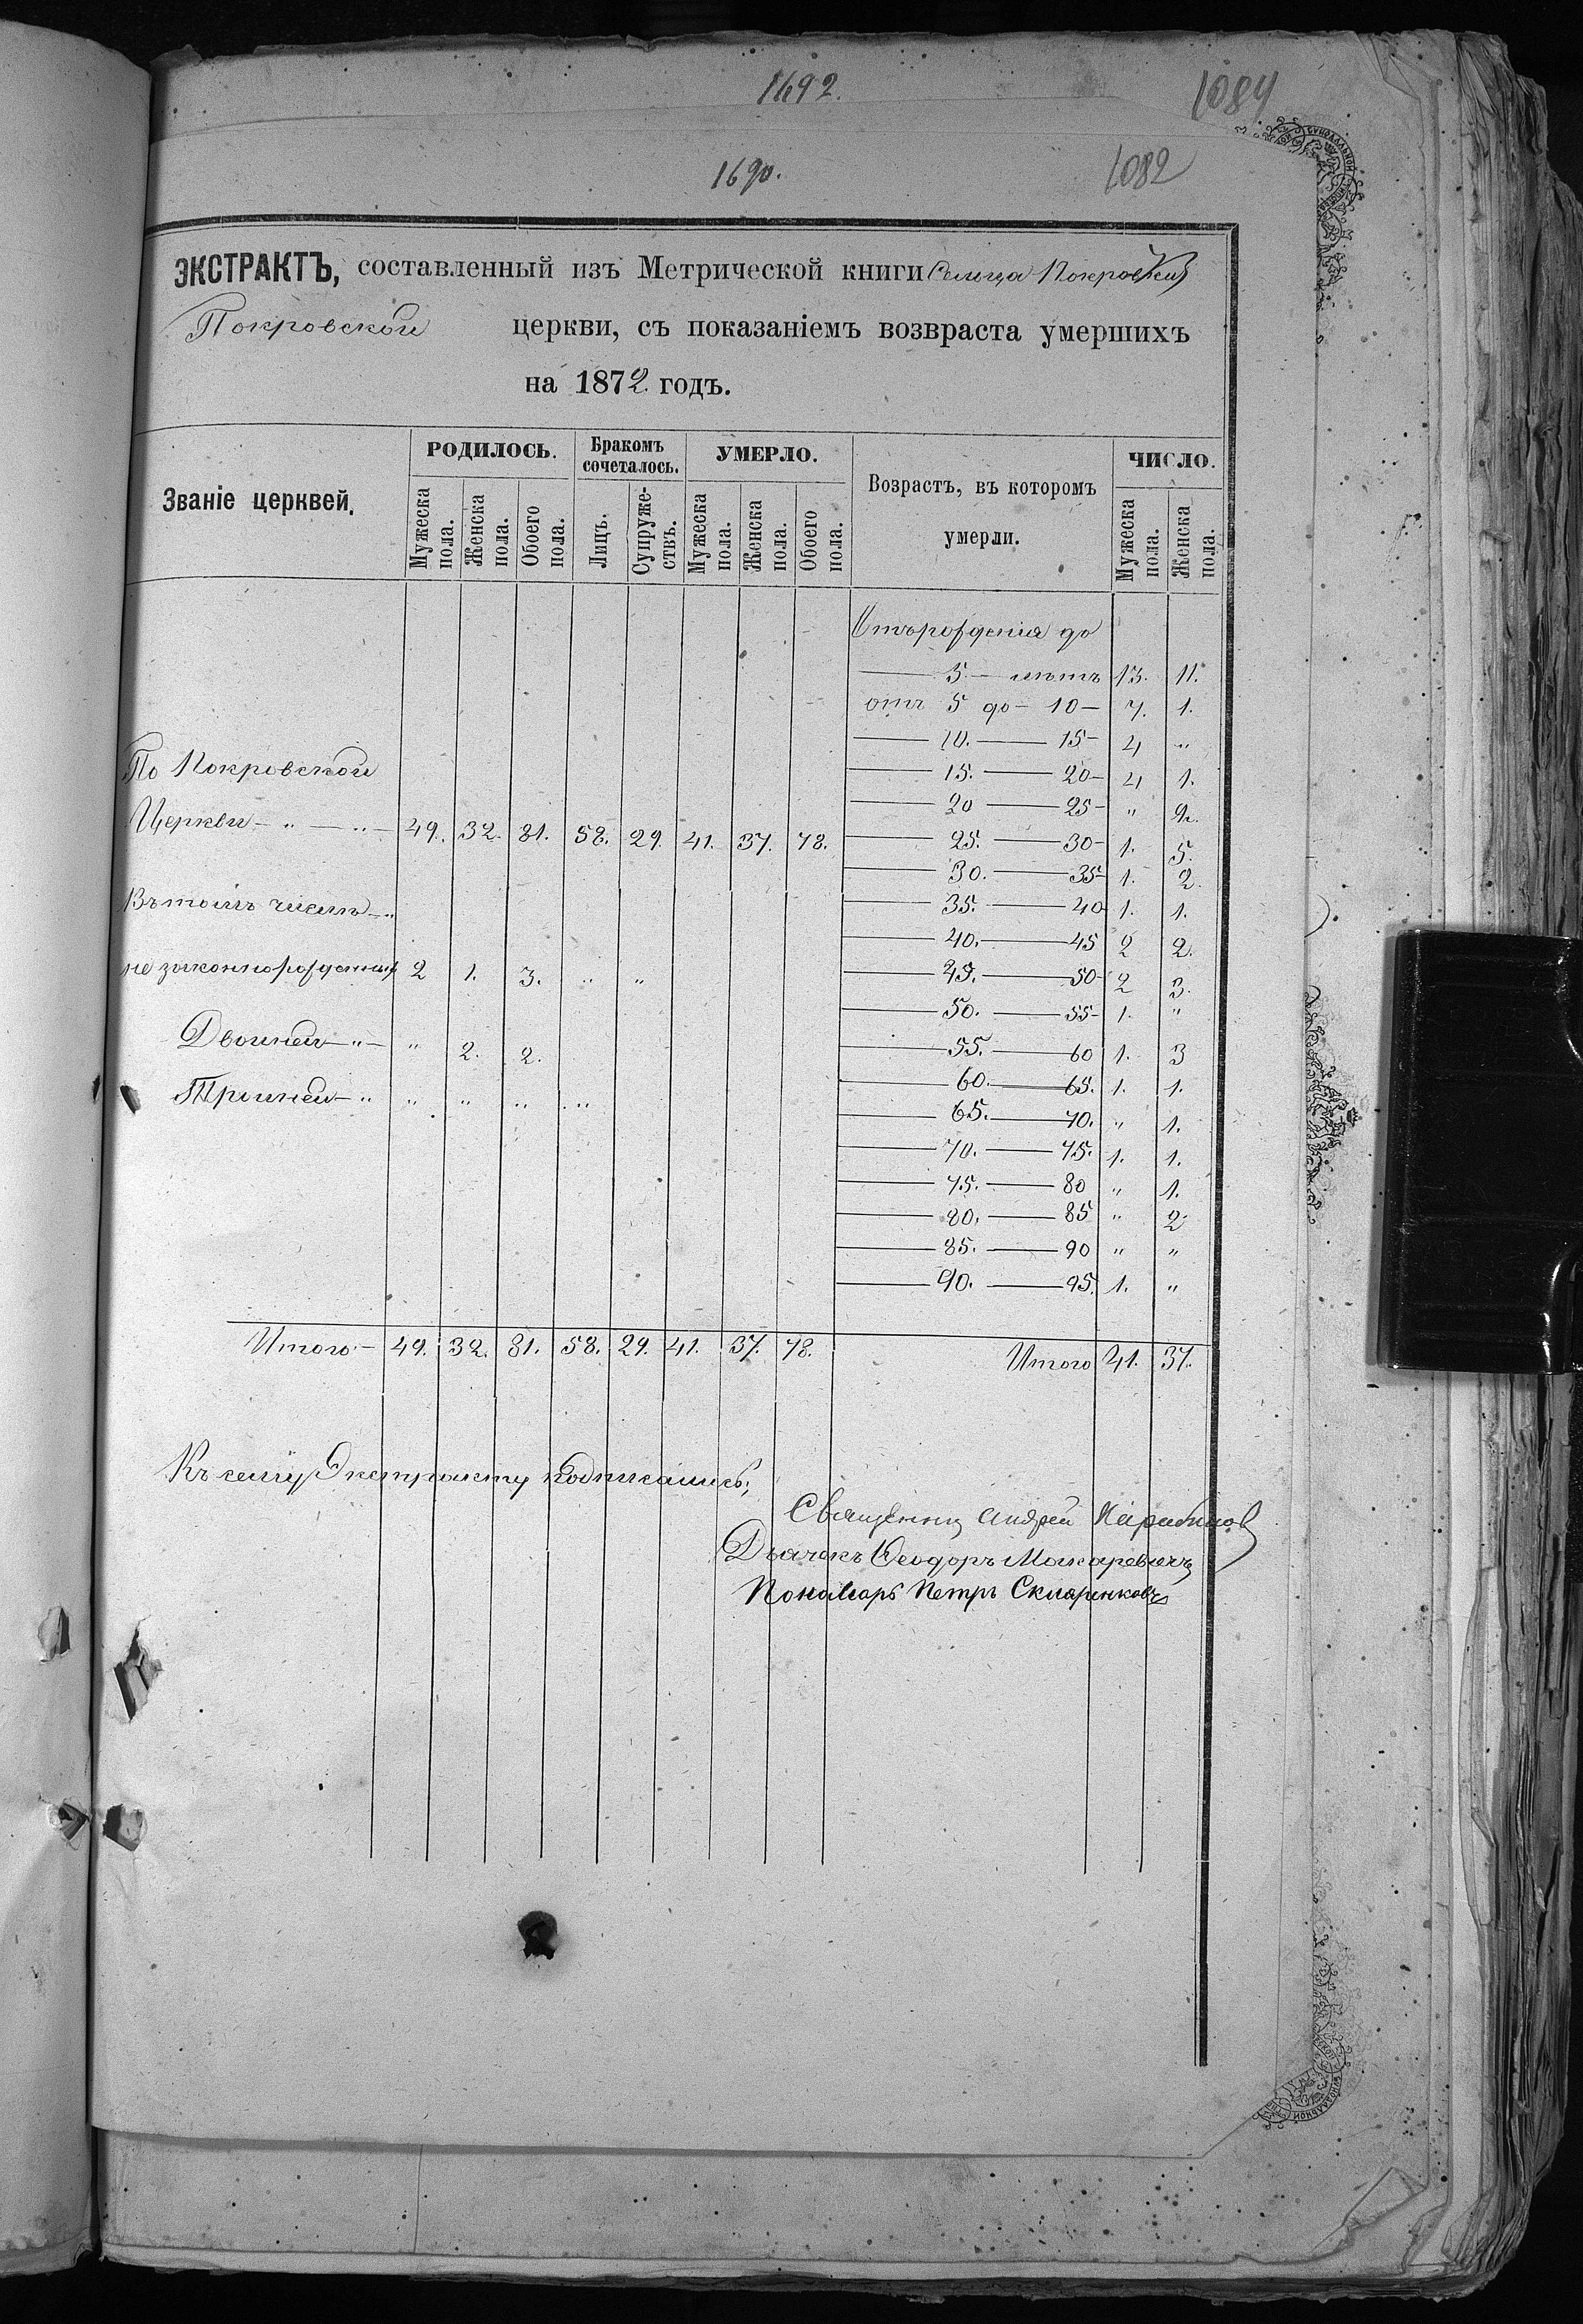 1692.
1084
1690.
1082
ЭКСТРАКТЪ, составленный изъ Метрической книги Сельца Покровки
Покровской церкви, съ показаніемъ возвраста умершихъ
на 1872 годъ.
Званіе церквей. РОДИЛОСЬ. Бракомъ сочеталось. УМЕРЛО. Возрастъ, въ которомъ умерли. ЧИСЛО.
Мужеска пола. Женска пола. Обоего пола. Лицъ. Супружествъ. Мужеска пола. Женска пола. Обоего пола. Мужеска пола. Женска пола.
Отъ рожденія до
— 5 — летъ 13. 11.
отъ 5 до — 10 — 7. 1.
— 10. — 15 — 4 "
По Покровской
— 15. — 20 — 4 1.
— 20 — 25 — " 2.
Церкви — " — " — 49. 32. 81. 58. 29. 41. 37. 78.
— 25. — 30 — 1. 5.
— 30. — 35 — 1. 2.
Въ томъ числѣ — "
— 35. — 40 1. 1.
— 40. — 45 2 2.
не законнорожденных 2 1. 3. " "
— 45. — 50 — 2 3.
— 50. — 55 — 1. "
Двойней — " — " 2. 2.
— 55. — 60 1. 3
— 60. — 65. 1. 1.
Тройней — " " " " "
— 65. — 70. " 1.
— 70. — 75. 1. 1.
— 75. — 80 " 1.
— 80. — 85 " 2
— 85. — 90 " "
— 90. — 95. 1. "
Итого — 49. 32. 81. 58. 29. 41. 37. 78. Итого 41. 37.
Къ сему Экстракту подписались;
Священник Андрей
Дьячекъ Ѳеодоръ Макаревичъ
Понамарь Петръ Скляренковъ